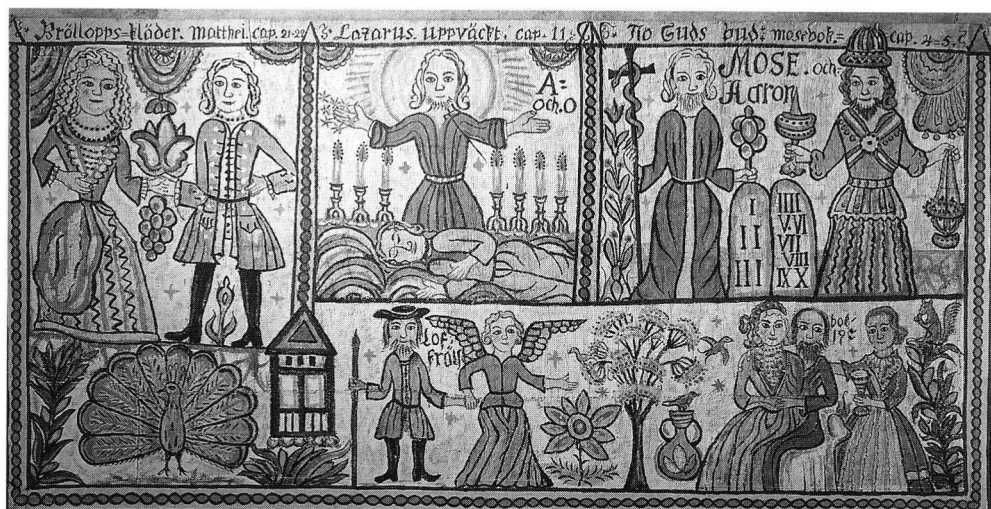 Bröllopps=kläder. Matthei. cap. 21-22
Lazarus. uppväckt. cap. 11.
Tio Guds bud: mosebok.= cap. 4=5.
A=
och. O
MOSE. och=
Aaron
I
II
III
IIII
V. VI
VII
VIII
IX X
Lof=
bok=